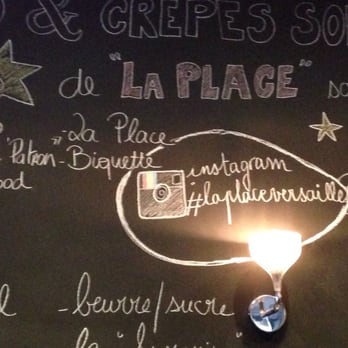 & CRÊPES
de "LA PLACE"
- La Place
"Patron" - Biquette
instagram
#laplaceversaille
- beurre/sucre